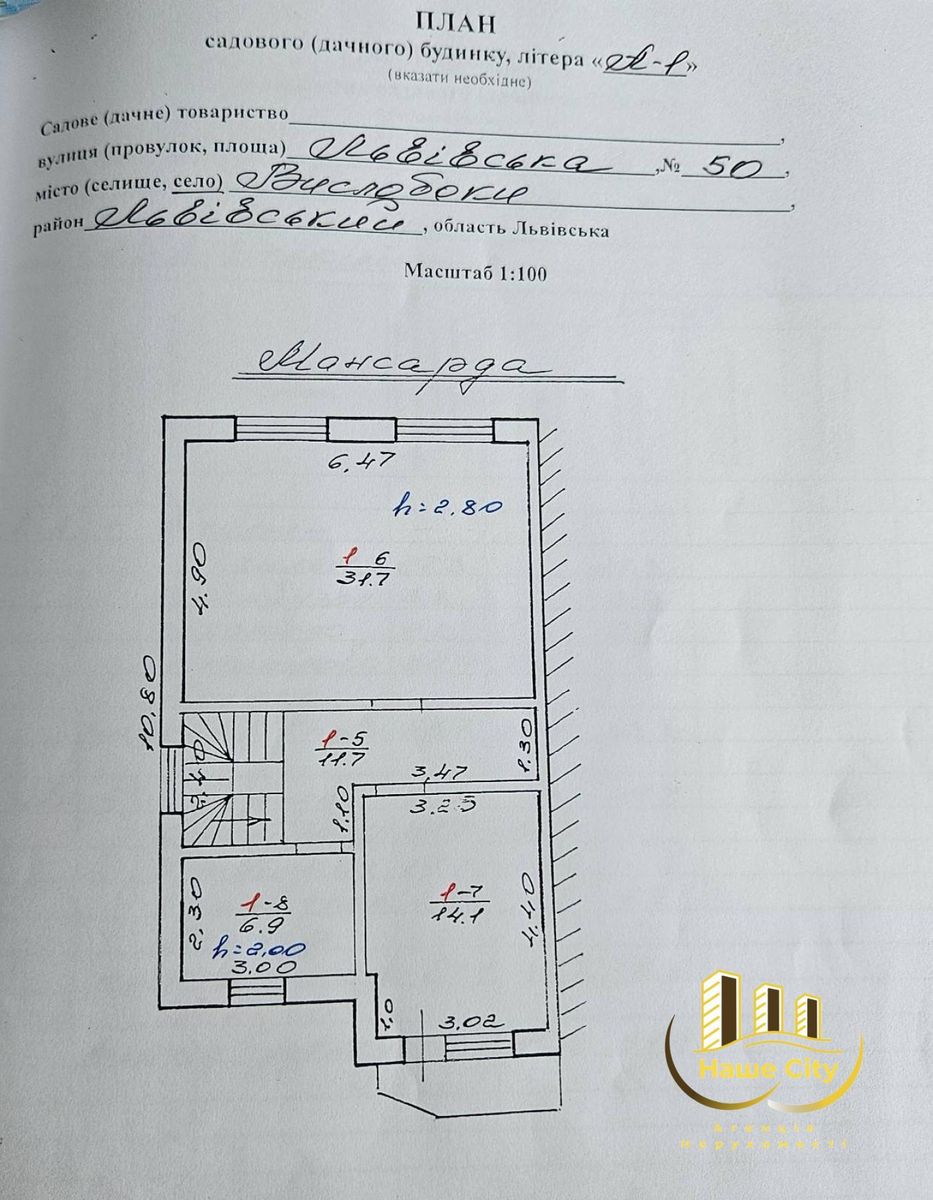 ПЛАН
садового (дачного) будинку, літера «А-1»
(вказати необхідне)
Садове (дачне) товариство
вулиця (провулок, площа) Львівська, № 50,
місто (селище, село) Вислобоки,
район Львівський, область Львівська
Масштаб 1:100
Мансарда
6,47
h=2.80
1 6
31.7
4.90
10,80
1-5
11.7
1.30
2,40
3,47
1.10
3.25
1-7
14.1
4,40
2,30
1-8
6.9
h=2,00
3,00
1,0
3,02
Наше City
Агенція
нерухомості